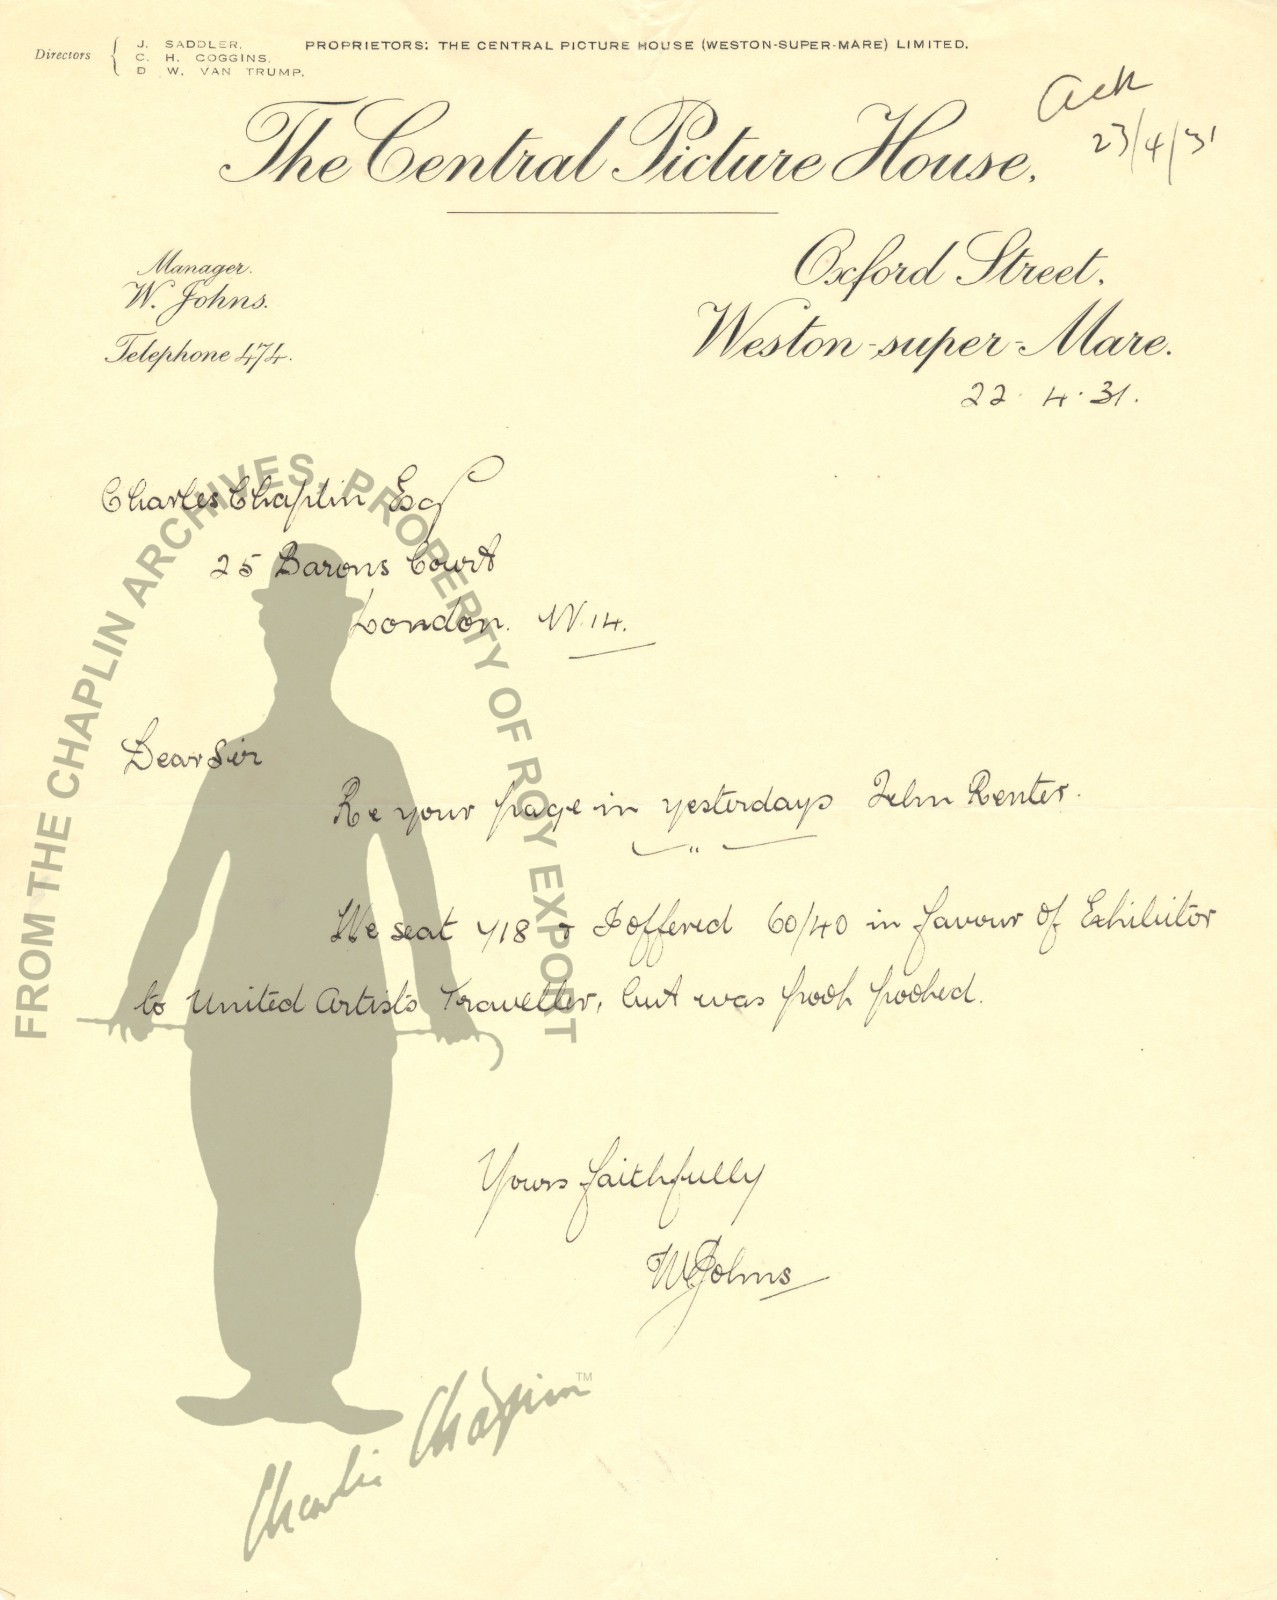 Directors
J. SADDLER.
C. H. COGGINS.
D W. VAN TRUMP.
PROPRIETORS: THE CENTRAL PICTURE HOUSE (WESTON-SUPER-MARE) LIMITED.
Ack
23/4/31
The Central Picture House.
Manager.
W. Johns.
Telephone 474.
Oxford Street.
Weston-super-Mare.
22. 4. 31.
Charles Chaplin Esq
25 Barons Court
London. W.14.
Dear Sir
Re your page in yesterdays Film Renter.
We seat 718 & I offered 60/40 in favour of Exhibitor
to United Artists Traveller, but was pooh poohed.
Yours faithfully
W Johns
FROM THE CHAPLIN ARCHIVES, PROPERTY OF ROY EXPORT
Charlie Chaplin TM